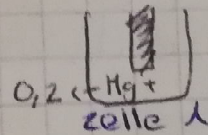 0,2 <- Hg +
zelle 1